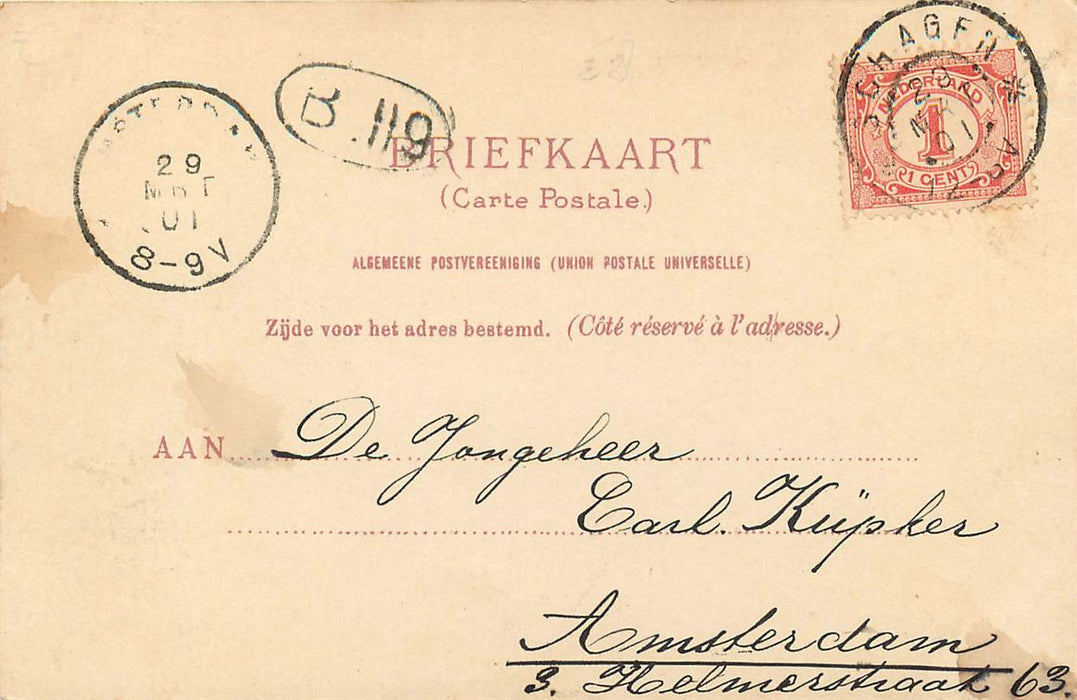 SCHAGEN
NEDERLAND
1
1 CENT
29
MRT
01
8-9V
B.119
BRIEFKAART
(Carte Postale.)
ALGEMEENE POSTVEREENIGING (UNION POSTALE UNIVERSELLE)
Zijde voor het adres bestemd. (Côté réservé à l'adresse.)
AAN De Jongeheer
Carl. Küpker
Amsterdam
3. Helmerstraat 63.